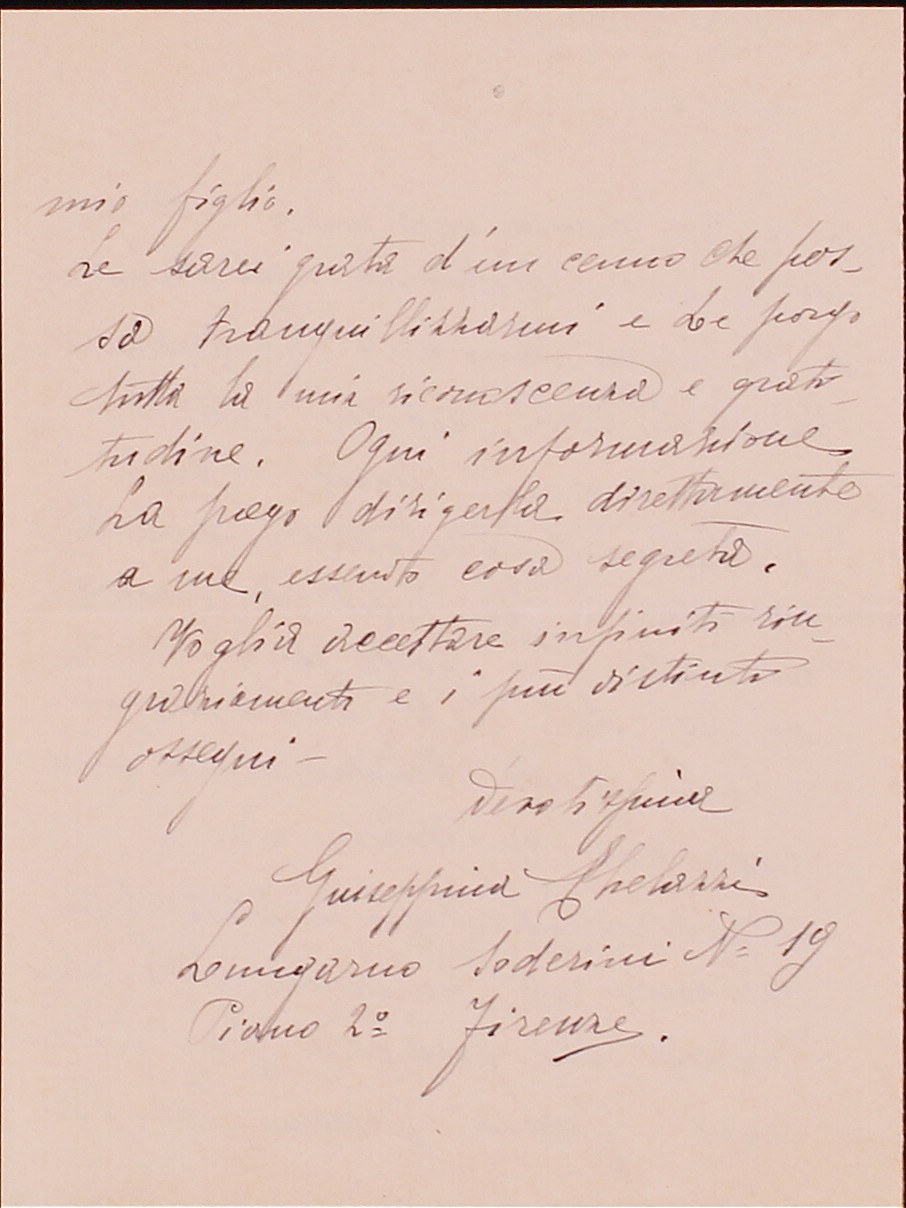 mio figlio.
Le sarei grata d'un cenno che pos-
sa tranquillizzarmi e Le porgo
tutta la mia riconoscenza e grati-
tudine. Ogni informazione
La prego dirigerla direttamente
a me, essendo cosa segreta.
Voglia accettare infiniti rin-
graziamenti e i più distinti
ossequi -
Devotissima
Guiseppina Chelazzi
Lungarno Soderini Nº 19
Piano 2º Firenze.